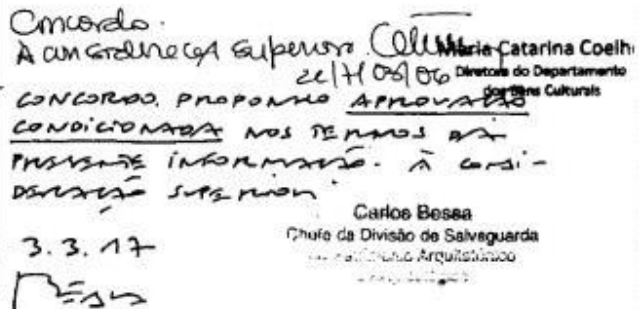 Concordo.
À consideração superior. Maria Catarina Coelho
Diretora do Departamento
dos Bens Culturais
CONCORDO. PROPONHO APROVAÇÃO
CONDICIONADA NOS TERMOS DA
PRESENTE INFORMAÇÃO. À CONSI-
DERAÇÃO SUPERIOR.
Carlos Bessa
Chefe da Divisão de Salvaguarda
Arquitetónico
3.3.17